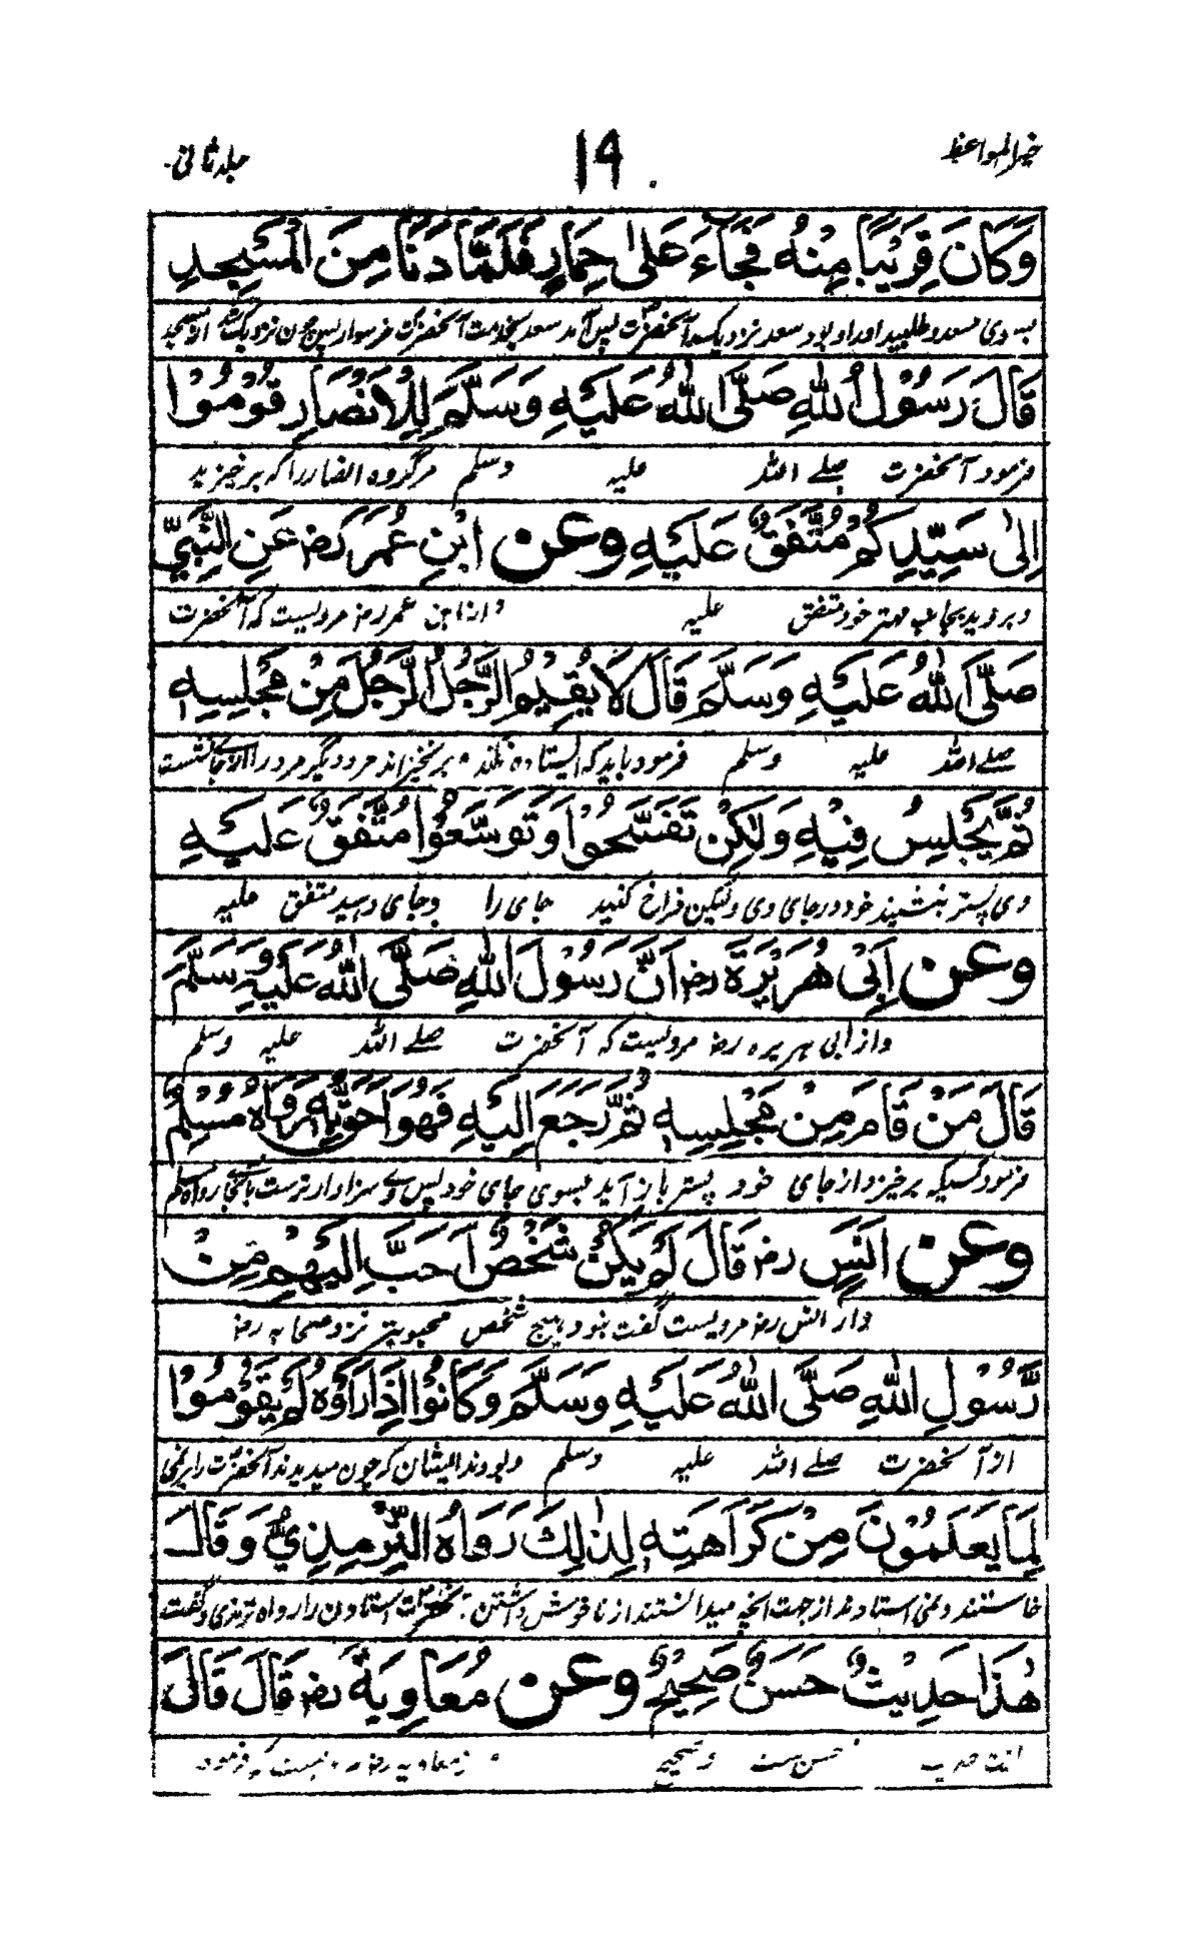 خیر المواعظ
۱۹
جلد ثانی
وَكَانَ قَرِيْبًا مِنْهُ فَجَاءَ عَلىٰ حِمَارٍ فَلَمَّا دَنَا مِنَ الْمَسْجِدِ
بسوی سعد و طلبید او را و بود سعد نزدیک آنحضرت پس آمد سعد بخدمت آنحضرت خر سوار پس چون نزدیک شد از مسجد
قَالَ رَسُوْلُ اللهِ صَلَّى اللهُ عَلَيْهِ وَسَلَّمَ لِلْاَنْصَارِ قُوْمُوْا
فرمود آنحضرت صلے اللہ علیہ وسلم مر گروہ انصار را کہ برخیزید
اِلىٰ سَيِّدِكُمْ مُتَّفَقٌ عَلَيْهِ وعن ابْنِ عُمَرَ رَضِ عَنِ النَّبِيِّ
و بروید بجانب مهتر خود متفق علیہ و از ابن عمر رض مرویست کہ آنحضرت
صَلَّى اللهُ عَلَيْهِ وَسَلَّمَ قَالَ لَا يُقِيْمُ الرَّجُلُ الرَّجُلَ مِنْ مَجْلِسِهٖ
صلے اللہ علیہ وسلم فرمود باید کہ ایستادہ نکند و برنخیزاند مرد دیگر مرد را از جای نشست
ثُمَّ يَجْلِسُ فِيْهِ وَلٰكِنْ تَفَسَّحُوْا وَتَوَسَّعُوْا مُتَّفَقٌ عَلَيْهِ
وی پستر بنشیند خود در جای وی ولیکن فراخ کنید جای را و جای دہید متفق علیہ
وعن اَبِيْ هُرَيْرَةَ رض اَنَّ رَسُوْلَ اللهِ صَلَّى اللهُ عَلَيْهِ وَسَلَّمَ
و از ابی ہریرہ رض مرویست کہ آنحضرت صلے اللہ علیہ وسلم
قَالَ مَنْ قَامَ مِنْ مَجْلِسِهٖ ثُمَّ رَجَعَ اِلَيْهِ فَهُوَ اَحَقُّ بِهٖ رَوَاهُ مُسْلِمٌ
فرمود کسیکہ برخیزد از جای خود پستر باز آید بسوی جای خود پس وے سزاوار ترست بآنجا رواہ مسلم
وعن اَنَسٍ رض قَالَ لَمْ يَكُنْ شَخْصٌ اَحَبَّ اِلَيْهِمْ مِنْ
و از انس رض مرویست گفت نبود ہیچ شخص محبوبتر نزد صحابہ رض
رَّسُوْلِ اللهِ صَلَّى اللهُ عَلَيْهِ وَسَلَّمَ وَكَانُوْا اِذَا رَاَوْهُ لَمْ يَقُوْمُوْا
از آنحضرت صلے اللہ علیہ وسلم و بودند ایشان کہ چون میدیدند آنحضرت را برنمی
لِمَا يَعْلَمُوْنَ مِنْ كَرَاهَتِهٖ لِذٰلِكَ رَوَاهُ التِّرْمِذِيُّ وَقَالَ
خاستند و نمی استادند از جهت آنچہ میدانستند از ناخوش داشتن آنحضرت استادن را رواہ ترمذی و گفت
هٰذَا حَدِيْثٌ حَسَنٌ صَحِيْحٌ وعن مُعَاوِيَةَ رض قَالَ قَالَ
حدیث حسن ست و صحیح معاویہ رض فرمود